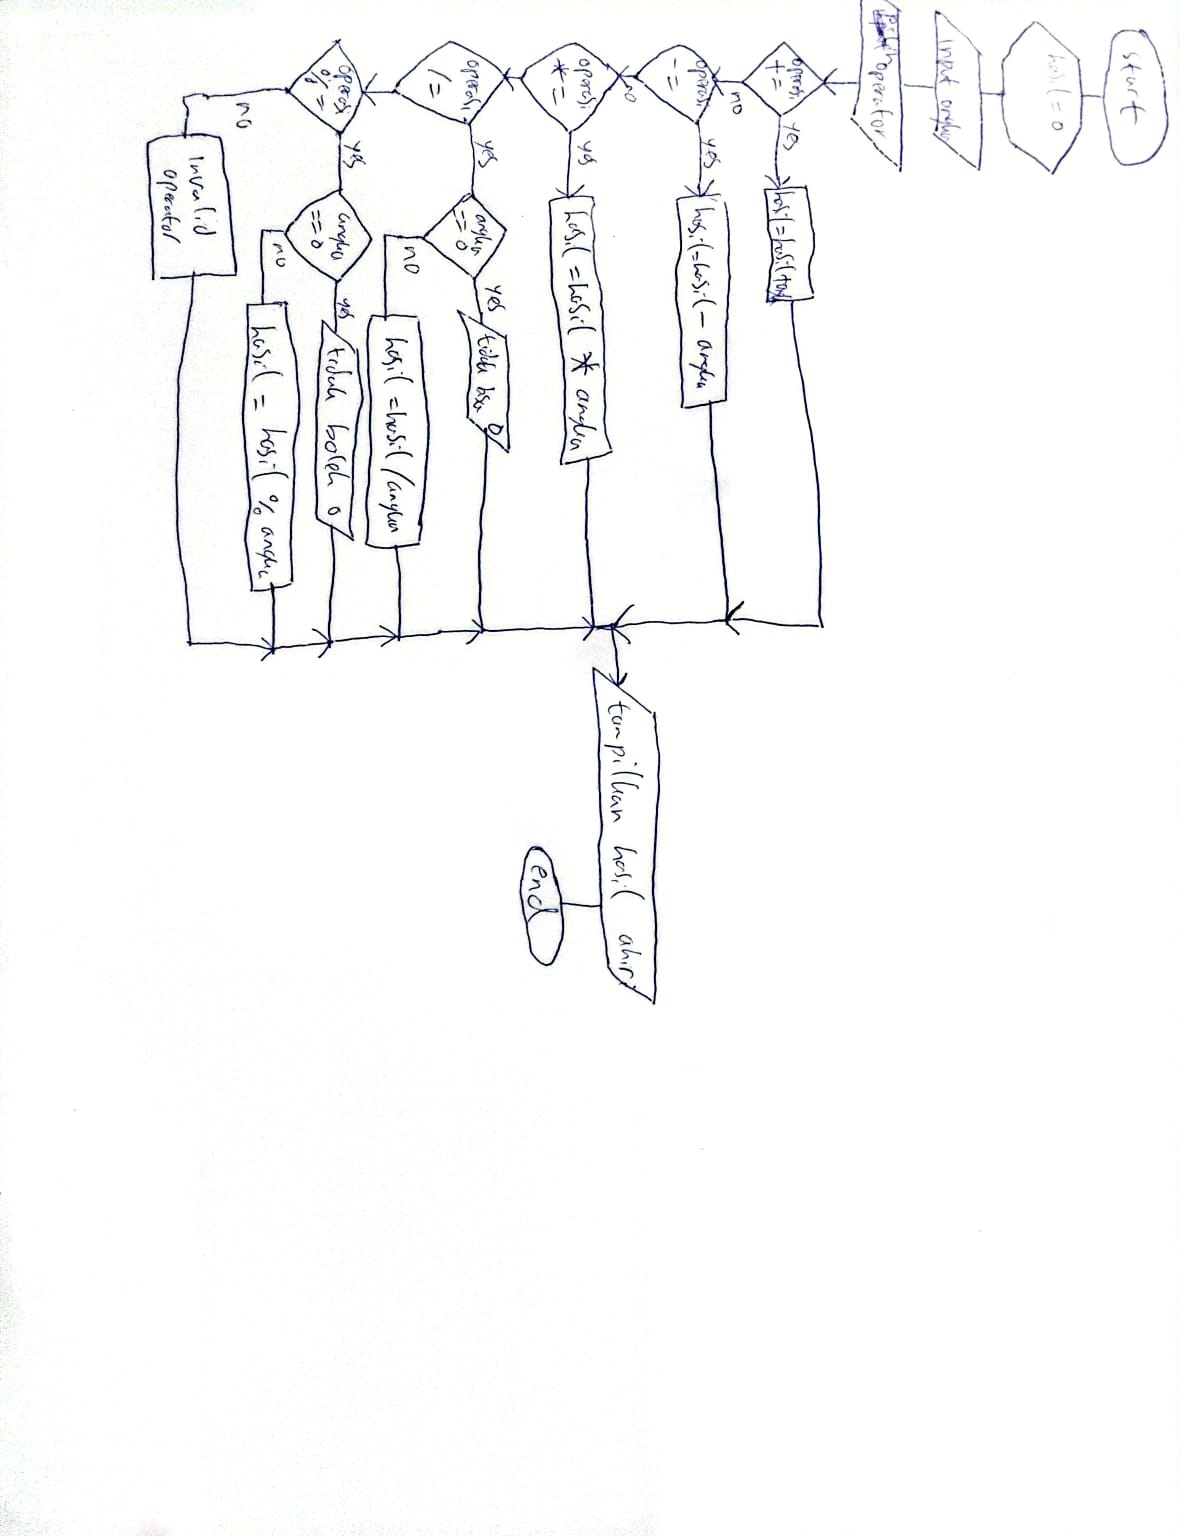 start
hasil = 0
input angka
operator
operasi
+=
yes
hasil=hasil+
no
operasi
-=
yes
hasil=hasil - angka
no
operasi
*=
yes
hasil = hasil * angka
operasi
/=
yes
angka
==0
yes
tidak bisa 0
no
hasil = hasil / angka
operasi
%=
yes
angka
==0
yes
tidak boleh 0
no
hasil = hasil % angka
no
Invalid
operator
tampilkan hasil ahir
end